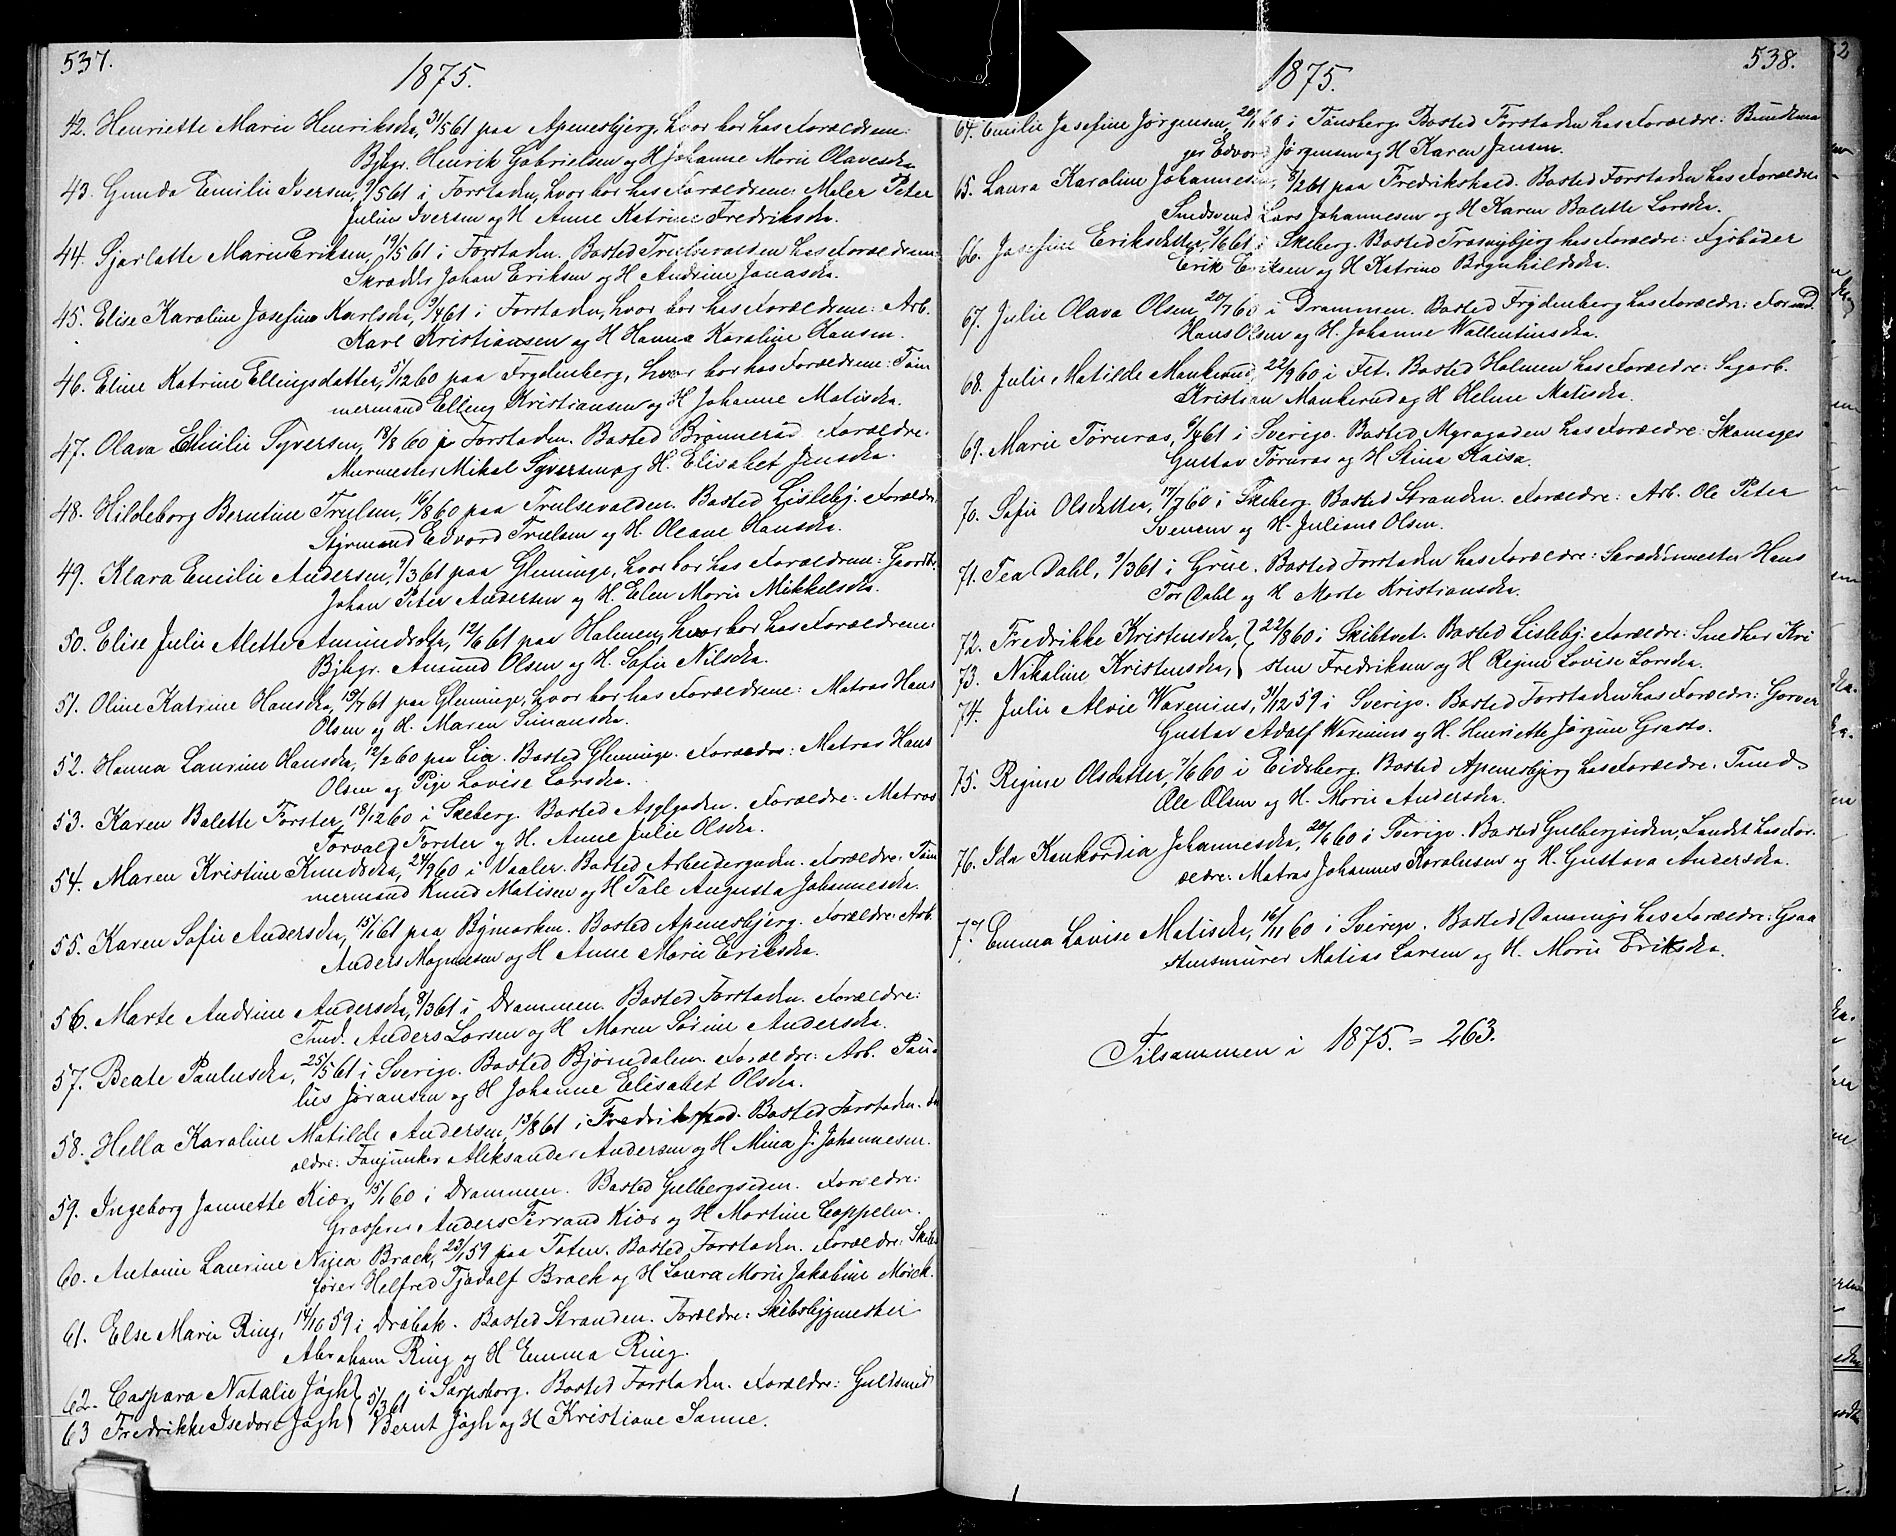 537.
1875.
42. Henriette Marie Henriksda, 31/5 61 paa Apenesbjerg, hvor bor has Forældrene:
Bjbgr. Henrik Gabrielsen og H Johanne Marie Olavesda.
43. Gunda Emilie Iversen, 9/5 61 i Forstaden, hvor bor has Forældrene: Maler Peter
Julius Iversen og H Anne Katrine Fredriksda.
44. Sjarlotte Marie Eriksen, 19/5 61 i Forstaden. Bosted Trulsevolden has Forældrene
Skrædder Johan Eriksen og H Andrine Jonasda.
45. Elise Karoline Josefine Karlsda, 9/4 61 i Forstaden, hvor bor has Forældrene: Arb.
Karl Kristiansen og H Hanna Karoline Hansen.
46. Eline Katrine Ellingsdatter, 5/12 60 paa Frydenberg, hvor bor has Forældrene: Tøm
mermand Elling Kristiansen og H Johanne Matisda.
47. Olava Emilie Syversen, 18/8 60 i Forstaden. Bosted Brønnerød. Forældre:
Murmester Mikal Syversen og H. Elisabet Jensda.
48. Hildeborg Berntine Trulsen, 16/8 60 paa Trulsevolden. Bosted Lisleby. Forældre
Styrmand Edvard Trulsen og H. Oleane Hansda.
49. Klara Emilie Andersen, 1/3 61 paa Glemminge, hvor bor has Forældrene: Gaardbr.
Johan Peter Andersen og H. Elen Marie Mikkelsda.
50. Elise Julie Alette Amundsda, 12/6 61 paa Holmen, hvor bor has Forældrene:
Bjbgr. Amund Olsen og H. Sofie Nilsda.
51. Oline Katrine Hansda, 19/7 61 paa Glemminge, hvor bor has Forældrene: Matros Hans
Olsen og H. Maren Simonsda.
52. Hanna Laurine Hansda, 12/2 60 paa Lia. Bosted Glemminge. Forældre: Matros Hans
Olsen og Pige Lovise Larsda.
53. Karen Balette Forster, 18/12 60 i Skeberg. Bosted Asylgaden. Forældre: Matros
Torvald Forster og H. Anne Julie Olsda.
54. Maren Kristine Knudsda, 24/9 60 i Vaaler. Bosted Arbeidergaden. Forældre: Tøm
mermand Knud Matisen og H Tale Augusta Johannesda.
55. Karen Sofie Andersda, 15/1 61 paa Bymarken. Bosted Apenesbjerg. Forældre: Arb.
Anders Magnusen og H Anne Marie Eriksda.
56. Marte Andrine Andersda, 8/3 61 i Drammen. Bosted Forstaden. Forældre:
Tmd. Anders Larsen og H Maren Sørine Andersda.
57. Beate Paulusda, 25/5 61 i Sverige. Bosted Bjørndalen. Forældre: Arb. Pau-
lus Jøransen og H Johanne Elisabet Olsda.
58. Hella Karoline Matilde Andersen, 13/8 61 i Fredrikstad. Bosted Forstaden. For
ældre: Fanjunker Aleksander Andersen og H Mina J. Johannesen.
59. Ingeborg Jannette Kiær, 15/1 60 i Drammen. Bosted Gulbergsiden. Forældre:
Grosserer Anders Ferrand Kiær og H Martine Coppelen.
60. Antonie Laurine Nina Brack, 23/1 59 paa Toten. Bosted Forstaden. Forældre: Skibs
fører Helfred Tjodolf Brack og H Laura Marie Jakobine Mørck.
61. Else Marie Ring, 14/10 59 i Drøbak. Bosted Stranden. Forældre: Skibsbygmester
Abraham Ring og H Emma Ring.
62. Caspara Natalie Jøgh } 5/3 61 i Sarpsborg. Bosted Forstaden. Forældre: Guldsmed
63 Fredrikke Isedore Jøgh } Bernt Jøgh og H Kristiane Sanne.
538.
1875.
64. Emilie Josefine Jørgensen, 20/1 60 i Tønsberg. Bosted Forstaden has Forældre: Bundtma
ger Edvard Jørgensen og H Karen Jensen.
65. Laura Karoline Johannesen, 8/2 61 paa Fredrikshald. Bosted Forstaden has Forældre
Smedsvend Lars Johannesen og H Karen Balette Larsda.
66. Josefine Eriksdatter, 3/6 61 i Skeberg. Bosted Trosvigbjerg has Forældre: Fyrbøder
Erik Eriksen og H Katrine Brynhildsda.
67. Julie Olava Olsen, 20/7 60 i Drammen. Bosted Frydenberg has Forældre: Formd.
Hans Olsen og H. Johanne Wallentinsda.
68. Julie Matilde Mankerud, 22/9 60 i Fet. Bosted Holmen has Forældre: Sagarb.
Kristian Mankerud og H Helene Matisda.
69. Marie Törnros, 6/4 61 i Sverige. Bosted Myragaden has Forældre: Skomager
Gustav Törnros og H Stina Kaisa.
70. Sofie Olsdatter, 17/7 60 i Skeberg. Bosted Stranden. Forældre: Arb. Ole Peter
Svensen og H. Juliane Olsen.
71. Tea Dahl, 2/3 61 i Grue. Bosted Forstaden has Forældre: Skræddermester Hans
Tor Dahl og H Marte Kristiansda.
72. Fredrikke Kristensda, } 22/8 60 i Skibtvet. Bosted Lisleby. Forældre: Snedker Kri
73. Nikoline Kristensda, } sten Fredriksen og H Regine Lovise Larsda.
74. Julie Alvie Warenius, 31/12 59 i Sverige. Bosted Forstaden has Forældre: Garver
Gustav Adolf Warenius og H. Henriette Jørgine Grasto.
75. Regine Olsdatter, 7/6 60 i Eidsberg. Bosted Apenesbjerg has Forældre. Tmd.
Ole Olsen og H. Marie Andersda.
76. Ida Konkordia Johannesda, 20/6 60 i Sverige. Bosted Gulbergsiden, Landet has For-
ældre: Matros Johannes Karolusen og H. Gustava Andersda.
77 Emma Lovise Matisda, 16/11 60 i Sverige. Bosted Damvig has Forældre: Graa
stensmurer Matias Larsen og H. Marie Eriksda.
Tilsammen i 1875. = 263.